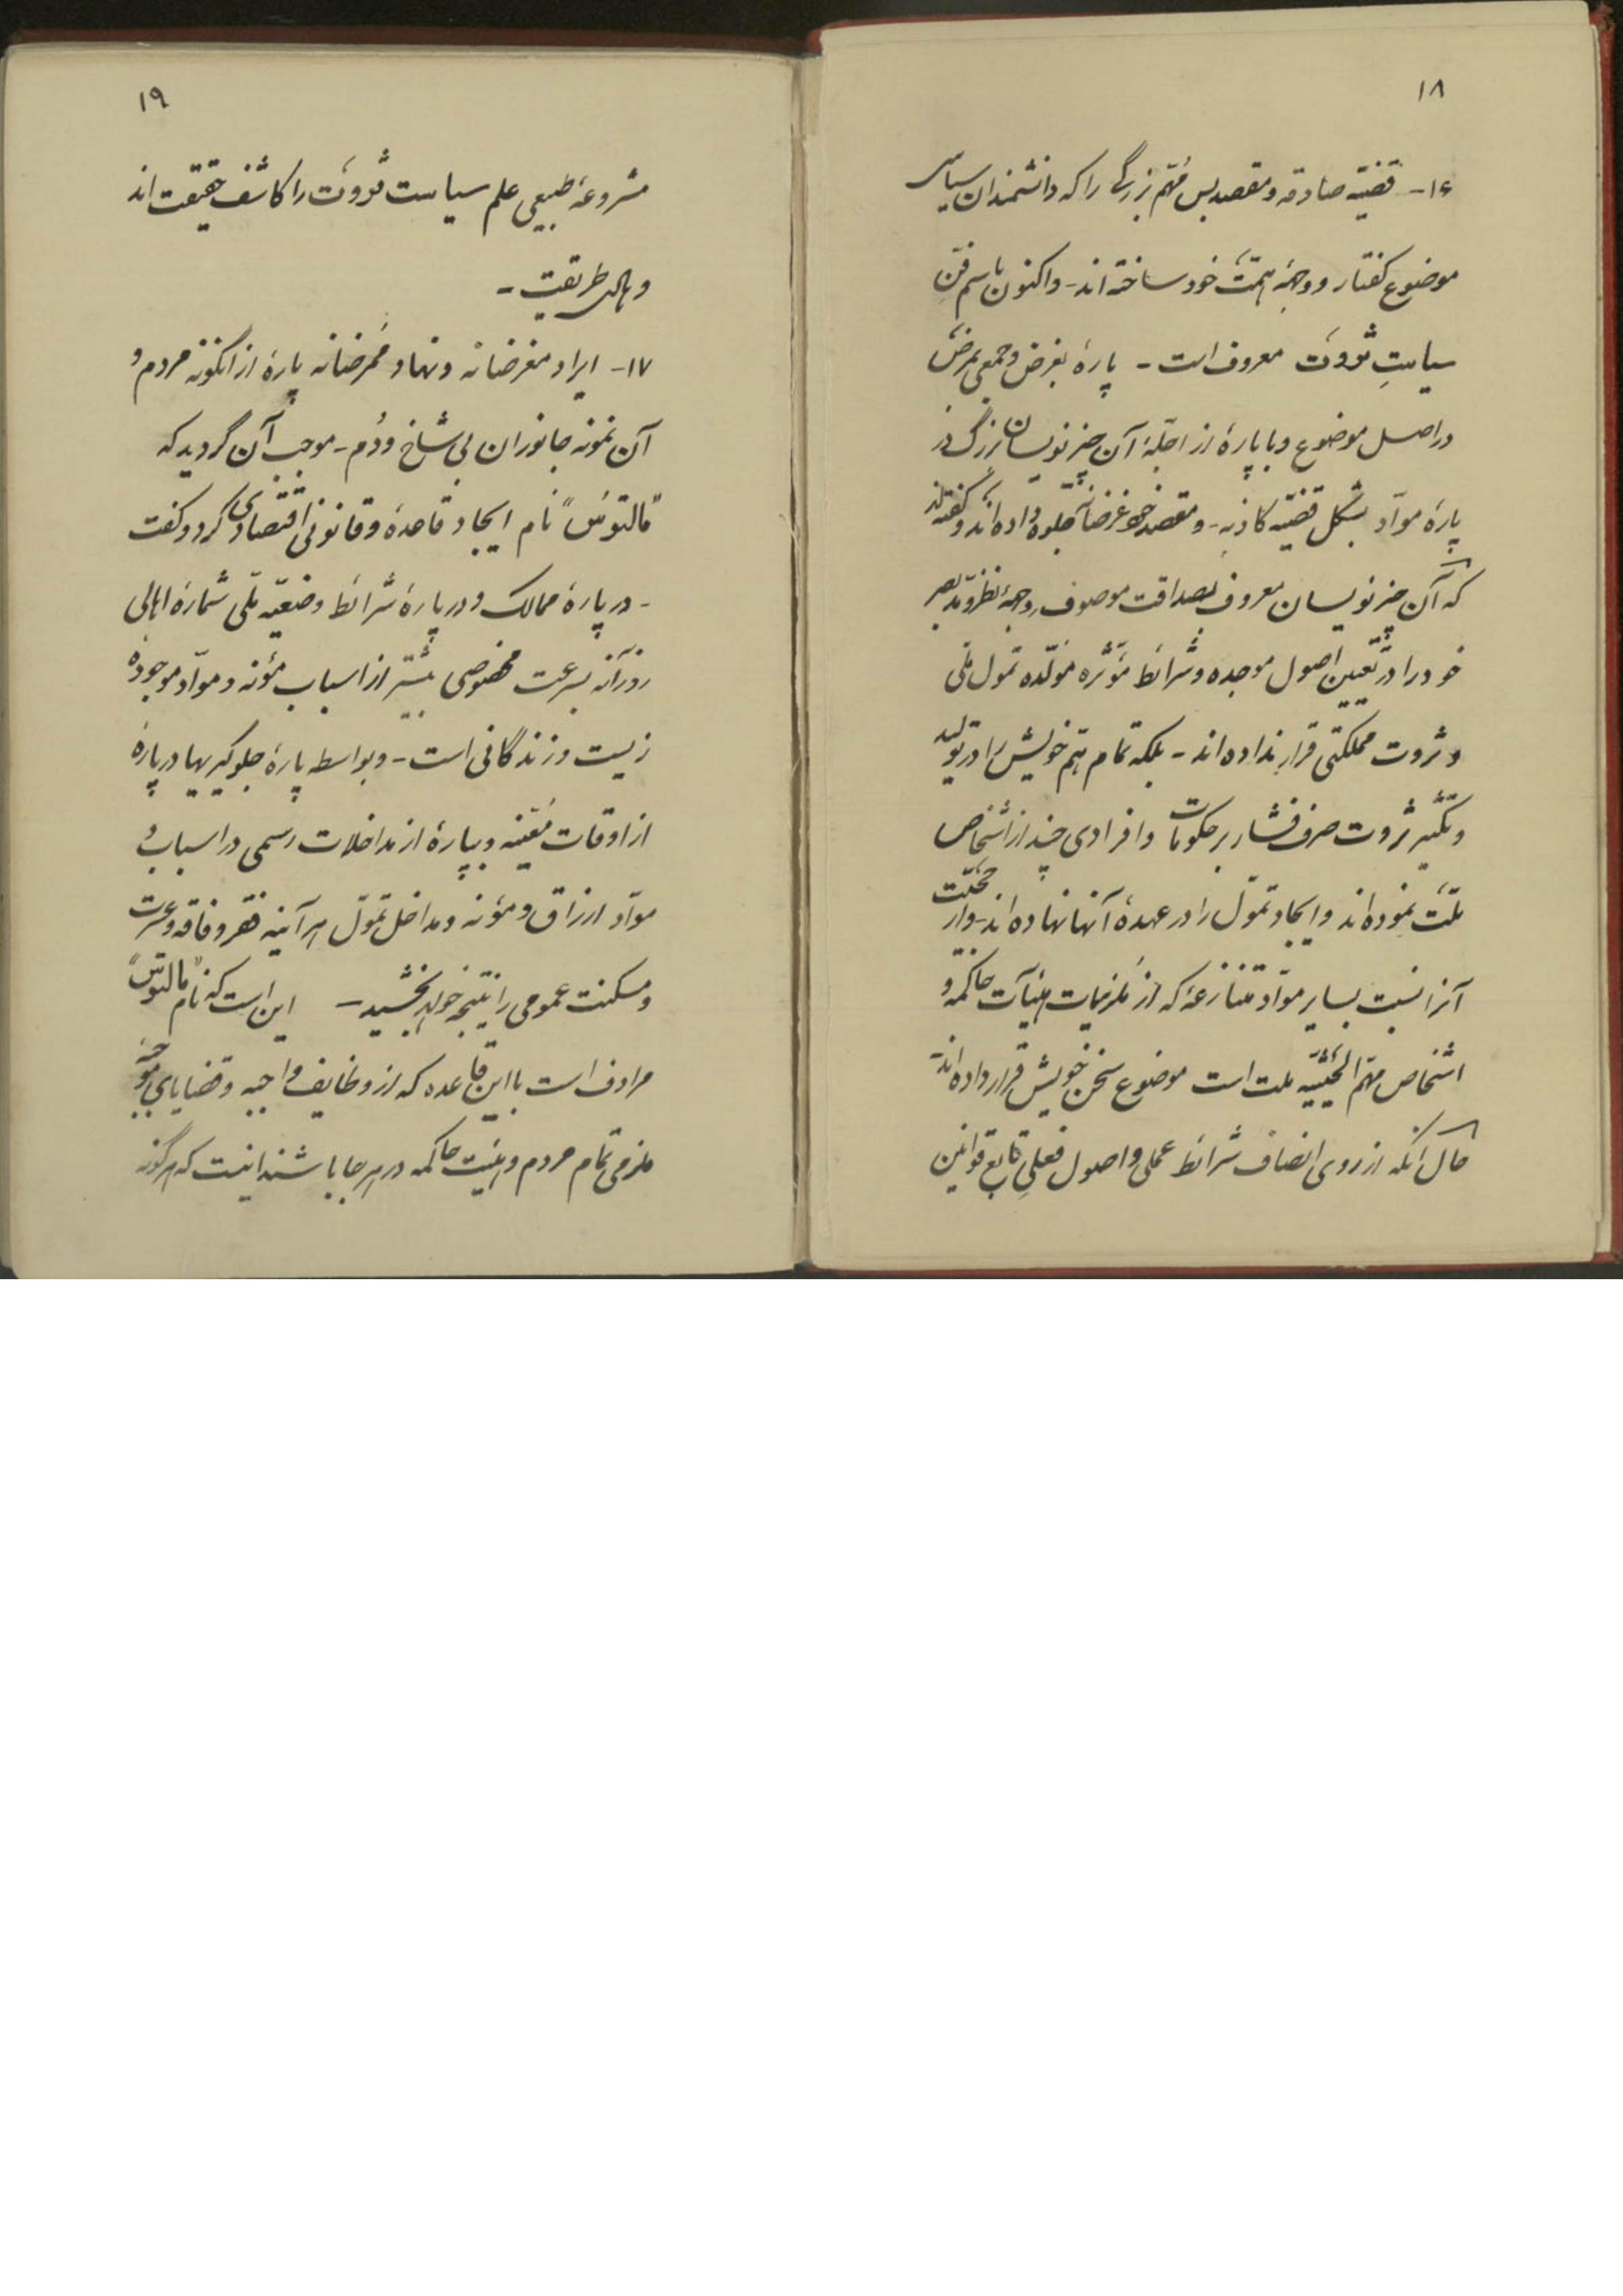 ۱۸
۱۶- قضیّه صادقه و مقصد بس مُهمّ بزرگی را که دانشمندان سیاسی
موضوع گفتار و وجههٔ همّت خود ساخته‌اند - و اکنون باسم فنّ
سیاستِ ثروت معروف است - پارهٔ بغرض و جمعی بمرض
در اصل موضوع و با پارهٔ از اجلّهٔ آن چیز نویسان بزرگ در
پارهٔ موادّ بشکل قضیّه کاذبه - و مقصد غرضانه جلوه داده‌اند و گفته‌اند
که آن چیز نویسان معروف بصداقت موصوف وجههٔ نظر و مدّ بصر
خود را در تعیین اصول موجده و شرائط مؤثّره مولّده تموّل ملّی
و ثروت مملکتی قرار نداده‌اند - بلکه تمام همّ خویش را در تولید
و تکثیر ثروت صرف فشار بر حکومات و افرادی چند از اشخاص
ملّت نموده‌اند و ایجاد تموّل را در عهدهٔ آنها نهاده‌اند - و از
آنرا نسبت بسایر موادّ متنازعهٔ که از ملزمیات هیئآت حاکمه و
اشخاص مهمّ الحیثیّه ملت است موضوع سخن خویش قرار داده‌اند
حال آنکه از روی انصاف شرائط عملی و اصول فعلیِ تابع قوانین
۱۹
مشروعهٔ طبیعی علم سیاست ثروت را کاشف حقیقت‌اند
و سالک طریقت -
۱۷- ایراد مغرضانه و نهاد مُمرضانه پارهٔ از اینگونه مردم و
آن نمونه جانوران بی شاخ و دُم - موجب آن گردید که
"مالتوس" نام ایجاد قاعدهٔ و قانونی اقتصادی کرد و گفت
- در پارهٔ ممالک و در پارهٔ شرائط وضعیّه ملّی شمارهٔ اهالی
روزآنه بسرعت مخصوصی بیشتر از اسباب مؤنه و موادّ موجودهٔ
زیست و زندگانی است - و بواسطه پارهٔ جلوگیریها در پارهٔ
از اوقات معیّنه و بپارهٔ از مداخلات رسمی در اسباب و
موادّ ارزاق و مؤنه و مداخل تموّل هر آینه فقر و فاقه و عسرت
و مسکنت عمومی را نتیجه خواهد بخشید - این است که نام "مالتوس"
مرادف است با این قاعده که از وظایف واجبه و قضایای
ملزمی تمام مردم و هیئت حاکمه در هر جا باشند اینست که هرگونه